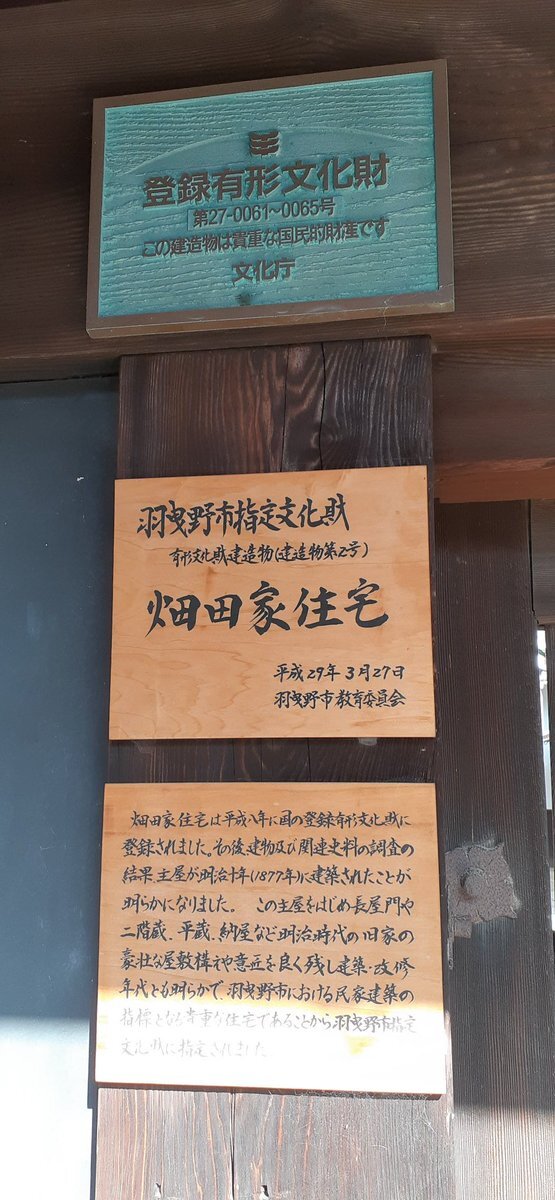 登録有形文化財
第27-0061~0065号
この建造物は貴重な国民的財産です
文化庁
羽曳野市指定文化財
有形文化財建造物(建造物第2号)
畑田家住宅
平成29年3月27日
羽曳野市教育委員会
畑田家住宅は平成八年に国の登録有形文化財に
登録されました。その後、建物及び関連史料の調査の
結果、主屋が明治十年(1877年)に建築されたことが
明らかになりました。 この主屋をはじめ長屋門や
二階蔵、平蔵、納屋など明治時代の旧家の
豪壮な屋敷構えや意匠を良く残し建築・改修
年代とも明らかで、羽曳野市における民家建築の
指標となる貴重な住宅であることから羽曳野市指定
文化財に指定されました